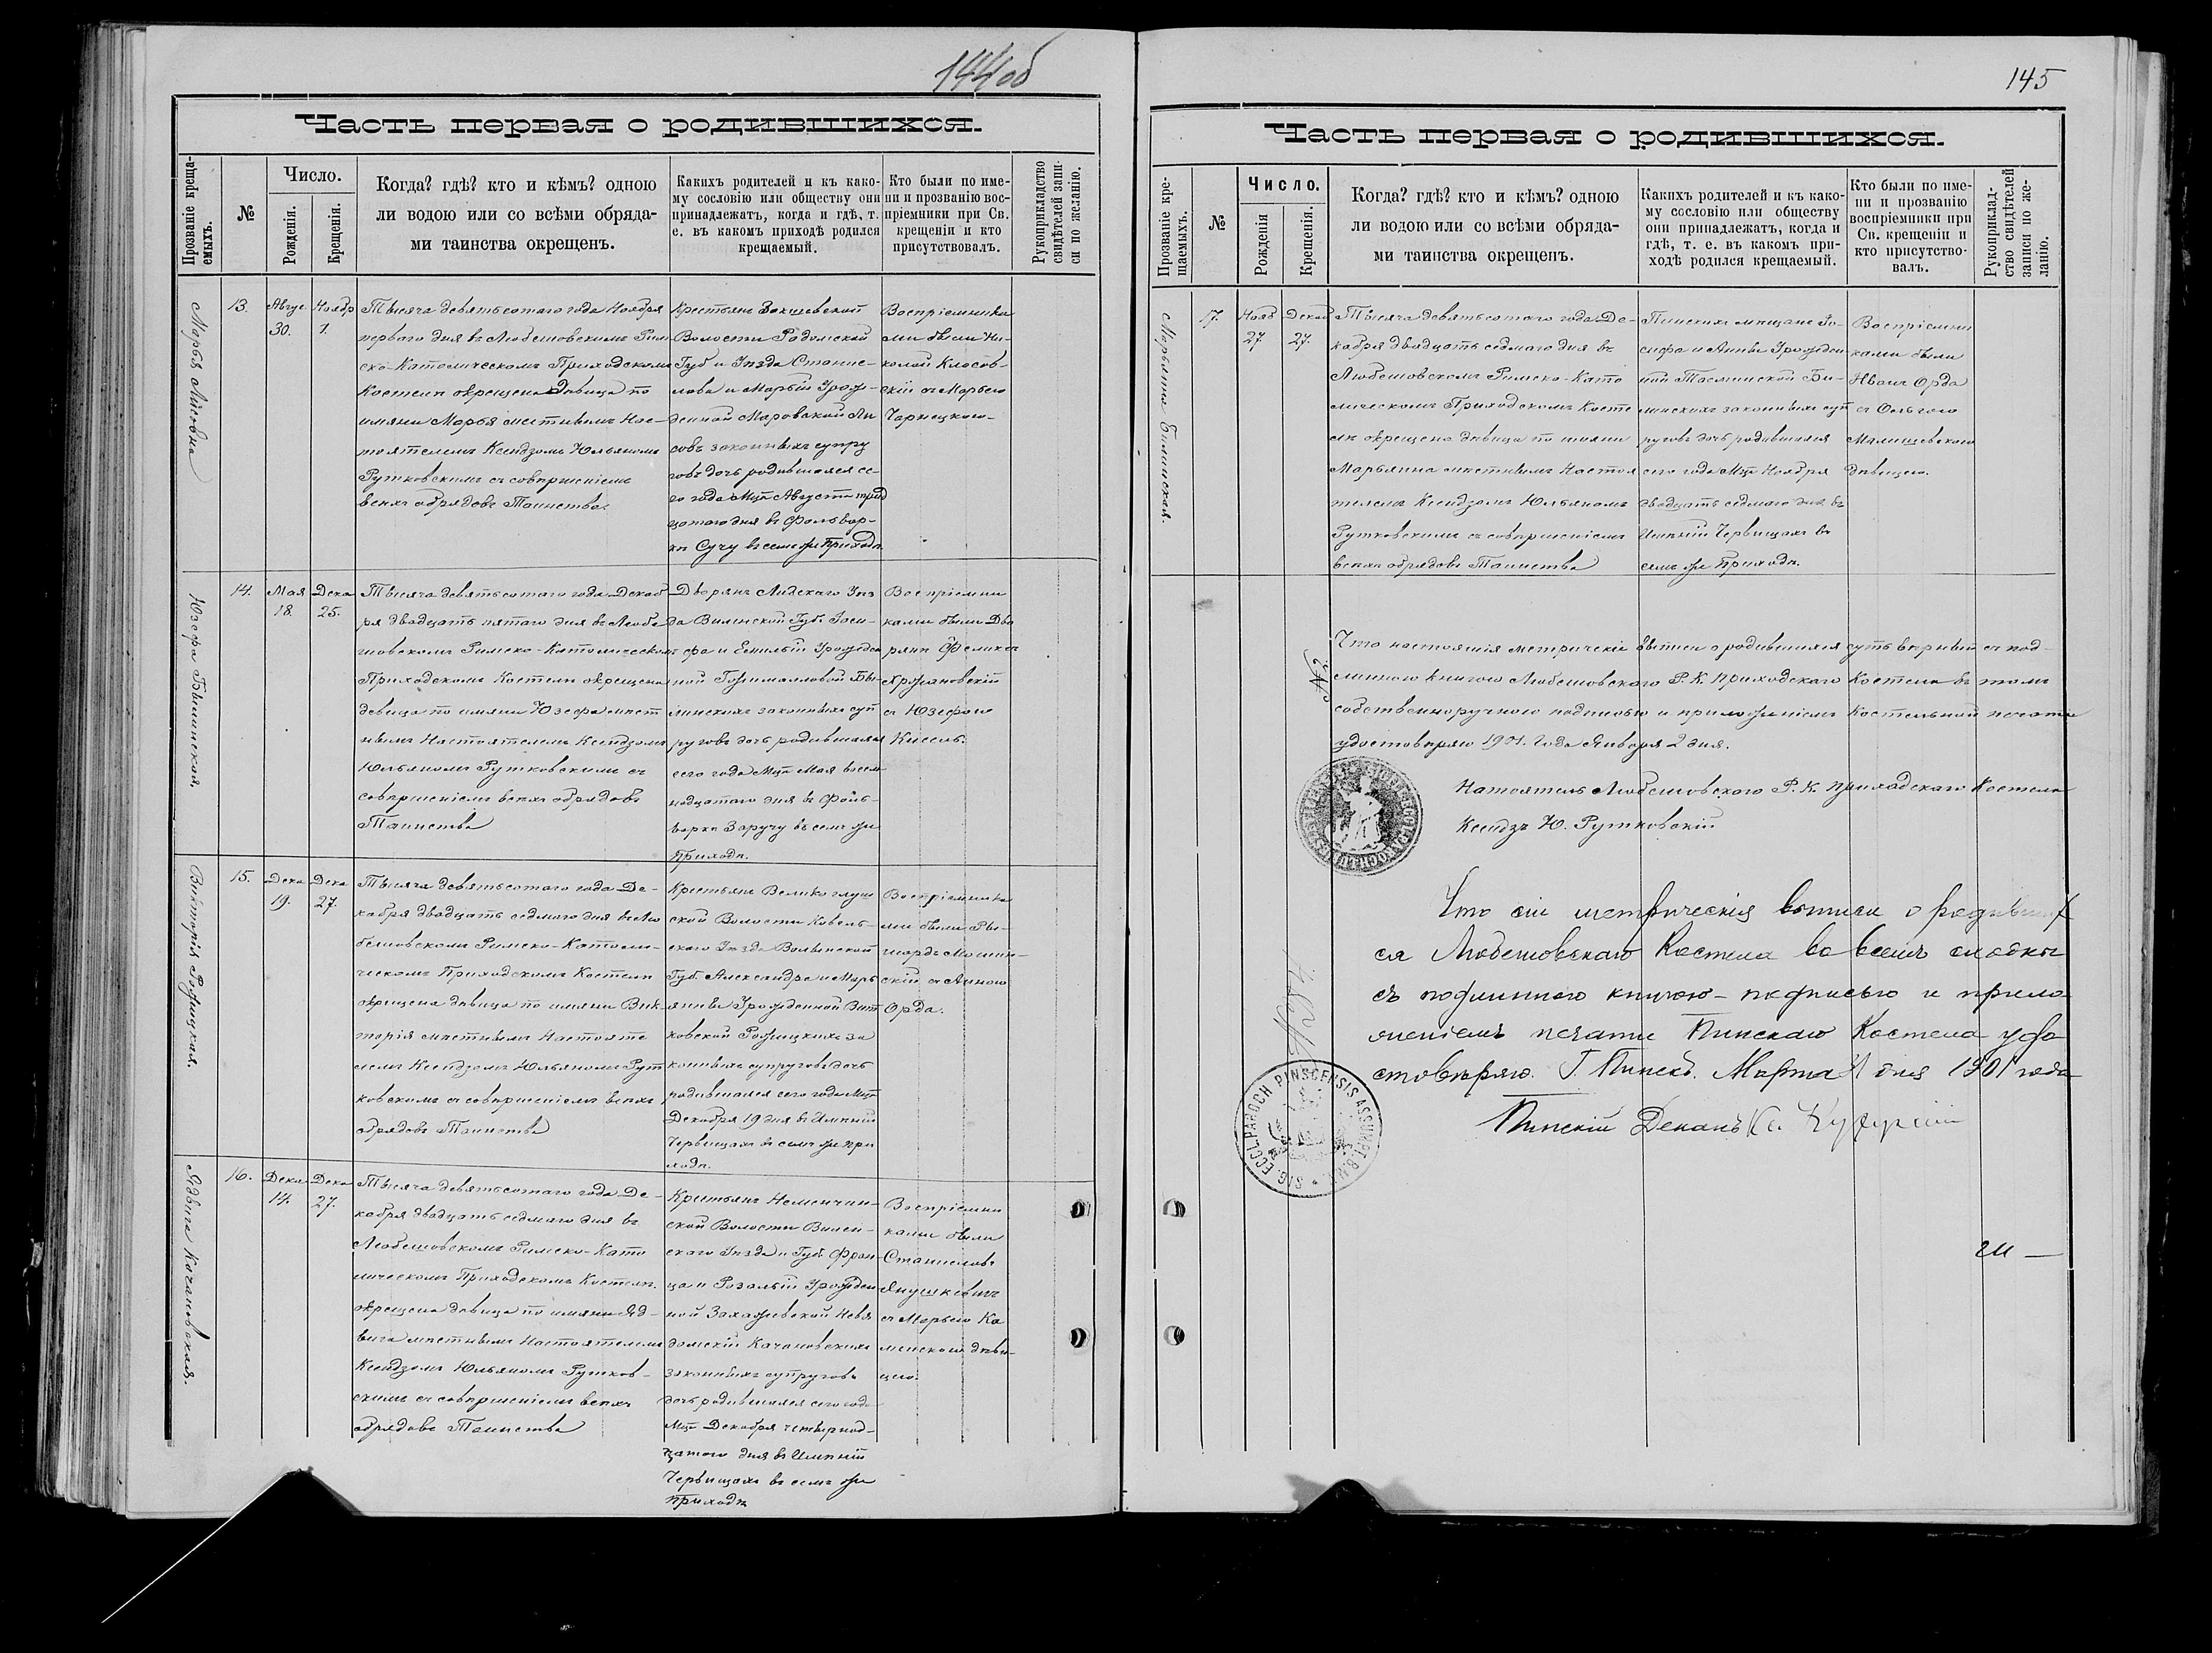 144об
Часть первая о родившихся.
Прозваніе крещаемыхъ.
№
Число.
Рожденія.
Крещенія.
Когда? гдѣ? кто и кѣмъ? одною
ли водою или со всѣми обряда-
ми таинства окрещенъ.
Какихъ родителей и къ како-
му сословію или обществу они
принадлежатъ, когда и гдѣ, т.
е. въ какомъ приходѣ родился
крещаемый.
Кто были по име-
ни и прозванію вос-
пріемники при Св.
крещеніи и кто
присутствовалъ.
Рукоприкладство
свидѣтелей запи-
си по желанію.
13.
Авгус
30.
Ноябр
1.
Тысяча девятьсотаго года Ноября
перваго дня въ Любешовскомъ Рим
ско-Католическомъ Приходскомъ
Костелѣ окрещена Дѣвица по
имяни Марья мѣстнымъ Нас-
тоятелемъ Ксендзомъ Юльяномъ
Рутковскимъ съ совершеніемъ
всѣхъ обрядовъ Таинства.
Крестьянъ
Волости Радомской
Губ и Уѣзда Станис-
лава и Марьи Урож-
денной Маровской Ли
совъ законныхъ супру
говъ дочь родившаяся се-
го года Мца Августа трид
цатаго дня въ Фольвар-
кѣ Сучу въ семъ же Приходѣ.
Воспріемника
ми были Ни-
колай
скій съ Марьею
Чарнецкою
14.
Юзефа Бѣлинская.
Мая
18.
Дека
25.
Тысяча девятьсотаго года Декаб
ря двадцать пятаго дня въ Любе
шовскомъ Римско-Католическомъ
Приходскомъ Костелѣ окрещена
девица по имяни Юзефа мѣст
нымъ Настоятелемъ Ксендзомъ
Юльяномъ Рутковскимъ съ
совершеніемъ всѣхъ обрядовъ
Таинства
Дворянъ Лидскаго Уѣз
да Виленской Губ. Іоси-
фа и Емильіи Урожден
ной Бѣ-
линскихъ законныхъ суп
руговъ дочь родившаяся
сего года Мца Мая восем
надцатаго дня въ Фоль-
варкѣ Заручу въ семъ же
Приходѣ.
Воспріемни
ками были Дво
рянъ Феликсъ
Хржановскій
съ Юзефою
Кисель.
15.
Викторія Рожицкая.
Дека
19.
Дека
27.
Тысяча девятьсотаго года Де-
кабря двадцать седмаго дня въ Лю
бешовскомъ Римско-Католи-
ческомъ Приходскомъ Костелѣ
окрещена дѣвица по имяни Вик-
торія мѣстнымъ Настояте
лемъ Ксендзомъ Юльяномъ Рут
ковскимъ съ совершеніемъ всѣхъ
обрядовъ Таинства
Крестьянъ Велико глуш
ской Волости Ковель-
скаго Уѣзда Волынской
Губ. Александра и Марь
янны Урожденной Вит
ковской Рожицкихъ за
конныхъ супруговъ дочь
родившаяся сего года Мца
Декабря 19 дня въ Имѣніи
Червищахъ въ семъ же при
ходѣ.
Воспріемника
ми были Ры-
шардъ
скій съ Анною
Орда.
16.
Ядвига Качановская.
Дека
14.
Дека
27.
Тысяча девятьсотаго года Де-
кабря двадцать седмаго дня въ
Любешовскомъ Римско-Като
лическомъ Приходскомъ Костелѣ
окрещена дѣвица по имяни Яд-
вига мѣстнымъ Настоятелемъ
Ксендзомъ Юльяномъ Рутков-
скимъ съ совершеніемъ всѣхъ
обрядовъ Таинства
Крестьянъ Неменчин-
ской Волости Вилен-
скаго Уѣзда и Губ. Фран-
ца и Розальіи Урожден
ной Захаржевской
Качановскихъ
законныхъ супруговъ
дочь родившаяся сего года
Мца Декабря четырнад-
цатаго дня въ Имѣніи
Червищахъ въ семъ же
приходѣ
Воспріемни
ками были
Станиславъ
Янушкевичъ
съ Марьею Ка
менскою дѣви-
цею.
145
Часть первая о родившихся.
Прозваніе кре-
щаемыхъ.
№
Число.
Рожденія
Крещенія.
Когда? гдѣ? кто и кѣмъ? одною
ли водою или со всѣми обряда-
ми таинства окрещенъ.
Какихъ родителей и къ како-
му сословію или обществу
они принадлежатъ, когда и
гдѣ, т. е. въ какомъ при-
ходѣ родился крещаемый.
Кто были по име-
ни и прозванію
воспріемники при
Св. крещеніи и
кто присутство-
валъ.
Рукоприклад-
ство свидѣтелей
записи по же-
ланію.
17.
Марьянна Билинская.
Нояб
27
Декаб
27.
Тысяча девятьсотаго года Де-
кабря двадцать седмаго дня въ
Любешовскомъ Римско-Като
лическомъ Приходскомъ Косте
лѣ окрещена дѣвица по имяни
Марьянна мѣстнымъ Настоя
телемъ Ксендзомъ Юльяномъ
Рутковскимъ съ совершеніемъ
всѣхъ обрядовъ Таинства
Пинскихъ мѣщанъ Іо-
сифа и Анны Урожден
ной Би-
линскихъ законныхъ суп
руговъ дочь родившаяся
сего года Мца Ноября
двадцать седмаго дня въ
Имѣніи Червищахъ въ
семъ же Приходѣ.
Воспріемни
ками были
Иванъ Орда
съ Ольгою
Малишевскою
дѣвицею.
Что настоящія метрическія выписи о родившихся суть вѣрныя съ под-
линною книгою Любешовскаго Р. К. Приходскаго Костела въ томъ
собственноручною подписью и приложеніемъ Костельной печати
удостовѣряю 1901. Года Января 2 дня.
Натоятель Любешовскаго Р. К. Приходскаго Костела
Ксендзъ Ю. Рутковскій
Что сіи метрическія выписи о родивших
ся Любешовскаго Костела во всемъ сходны
съ подлинною книгою - подписью и прило
женіемъ печати Пинскаго Костела удо
стовѣряю. Г. Пинскъ. Марта 21 дня 1901 года
Пинскій Деканъ Кс.
SIG. ECCL. PAROCH PINSCENSIS ASSUMPT. B.M.V.